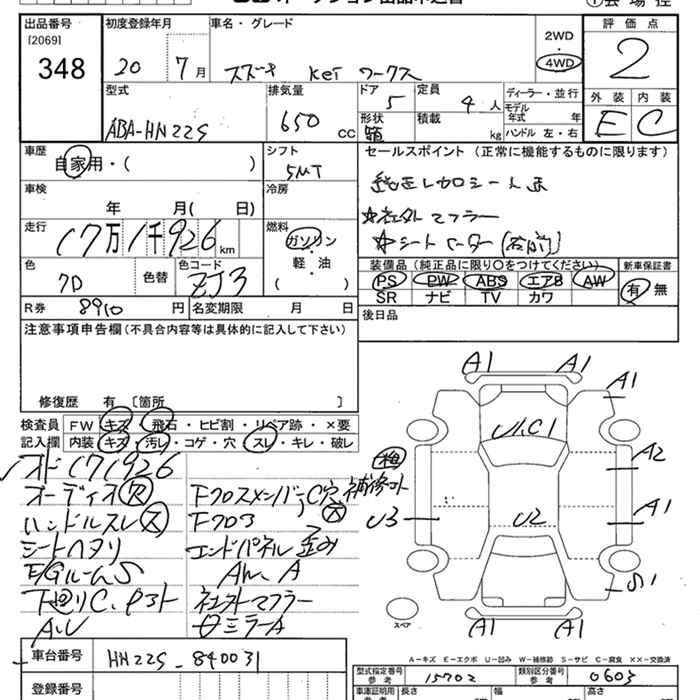 出品番号
[2069]
348
初度登録年月
20 7月
車名・グレード
スズキ Kei ワークス
2WD
4WD
評価点
2
型式
ABA-HN22S
排気量
650 CC
ドア 5
形状 箱
定員 4 人
積載 kg
ディーラー・並行
モデル
年式 年
ハンドル 左・右
外装 内装
E C
車歴
自家用・( )
シフト
5MT
セールスポイント (正常に機能するものに限ります)
純正レカロシート
☆社外マフラー
☆シートヒーター(右前)
車検
年 月( 日)
冷房
走行
17万1千926km
燃料
ガソリン
軽・油
( )
色
7D
色替
色コード
ZJ3
装備品 (純正品に限り○をつけてください)
PS PW ABS エアB AW
SR ナビ TV カワ
新車保証書
有 無
R券 8910 円
名変期限 月 日
後日品
注意事項申告欄(不具合内容等は具体的に記入して下さい)
修復歴 有〔箇所 〕
検査員
記入欄
FW キズ・飛石・ヒビ割・リペア跡・×要
内装 キズ・汚レ・コゲ・穴・スレ・キレ・破レ
オドC 171926
オーディオ欠
ハンドルスレ大
シートヘタリ
E/GルームS
下回りC、Pコト
A、U
FクロスメンバーC穴大補修コト
Fフロア
エンドパネル歪み
AW、A
社外マフラー
ミラーA
A1 A1
A1
U1C1
A2
U3
A1
U2
S1
A1 A1
スペア
A-キズ E-エクボ U-凹み W-補修跡 S-サビ C-腐食 XX-交換済
車台番号
HN22S-840031
登録番号
型式指定番号
参考
15702
類別区分番号
参考
0603
車庫証明用
参考
長さ
幅
高さ